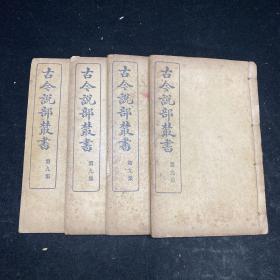 古今說部叢書
第九集
古今說部叢書
第九集
古今說部叢書
第九集
古今說部叢書
第九集